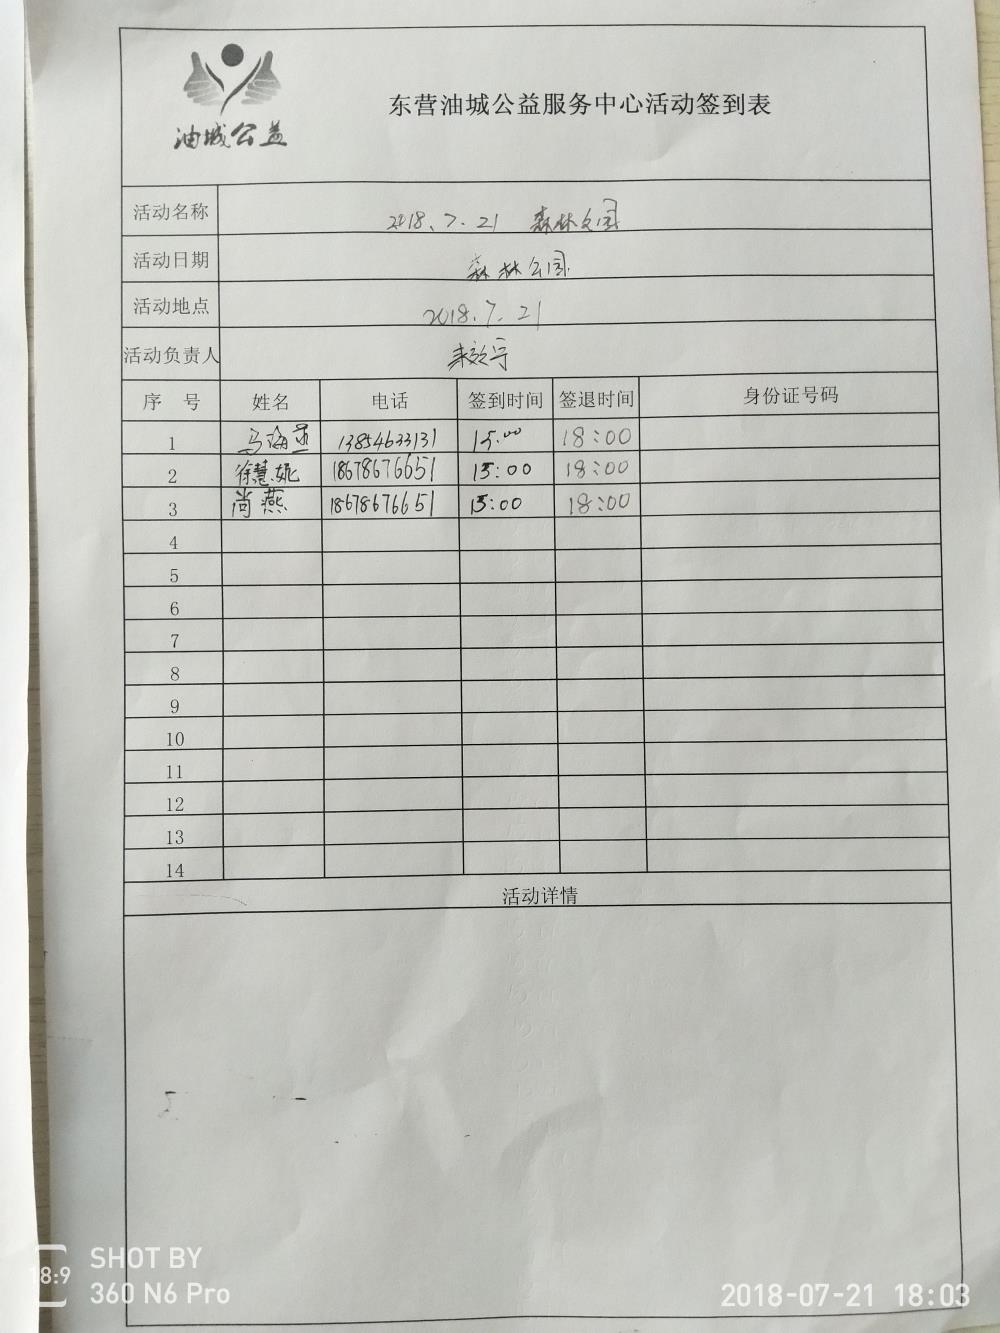 油城公益
东营油城公益服务中心活动签到表
活动名称 2018.7.21 森林公园
活动日期 森林公园
活动地点 2018.7.21
活动负责人
序 号 姓名 电话 签到时间 签退时间 身份证号码
1 马海 13854633131 15:00 18:00
2 徐慧妮 18678676651 15:00 18:00
3 尚燕 18678676651 15:00 18:00
4
5
6
7
8
9
10
11
12
13
14
活动详情
18:9 SHOT BY
360 N6 Pro
2018-07-21 18:03